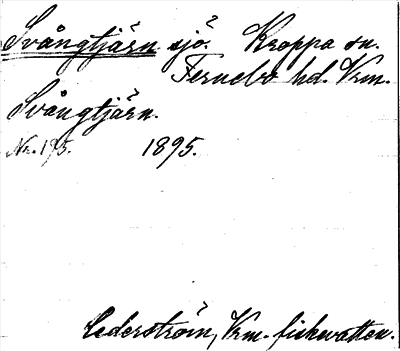 Svångtjärn sjö. Kroppa sn.
Fernebo hd. Vrm.
Svångtjärn.
Nr. 195. 1895.
Cederström, Vrm. fiskevatten.